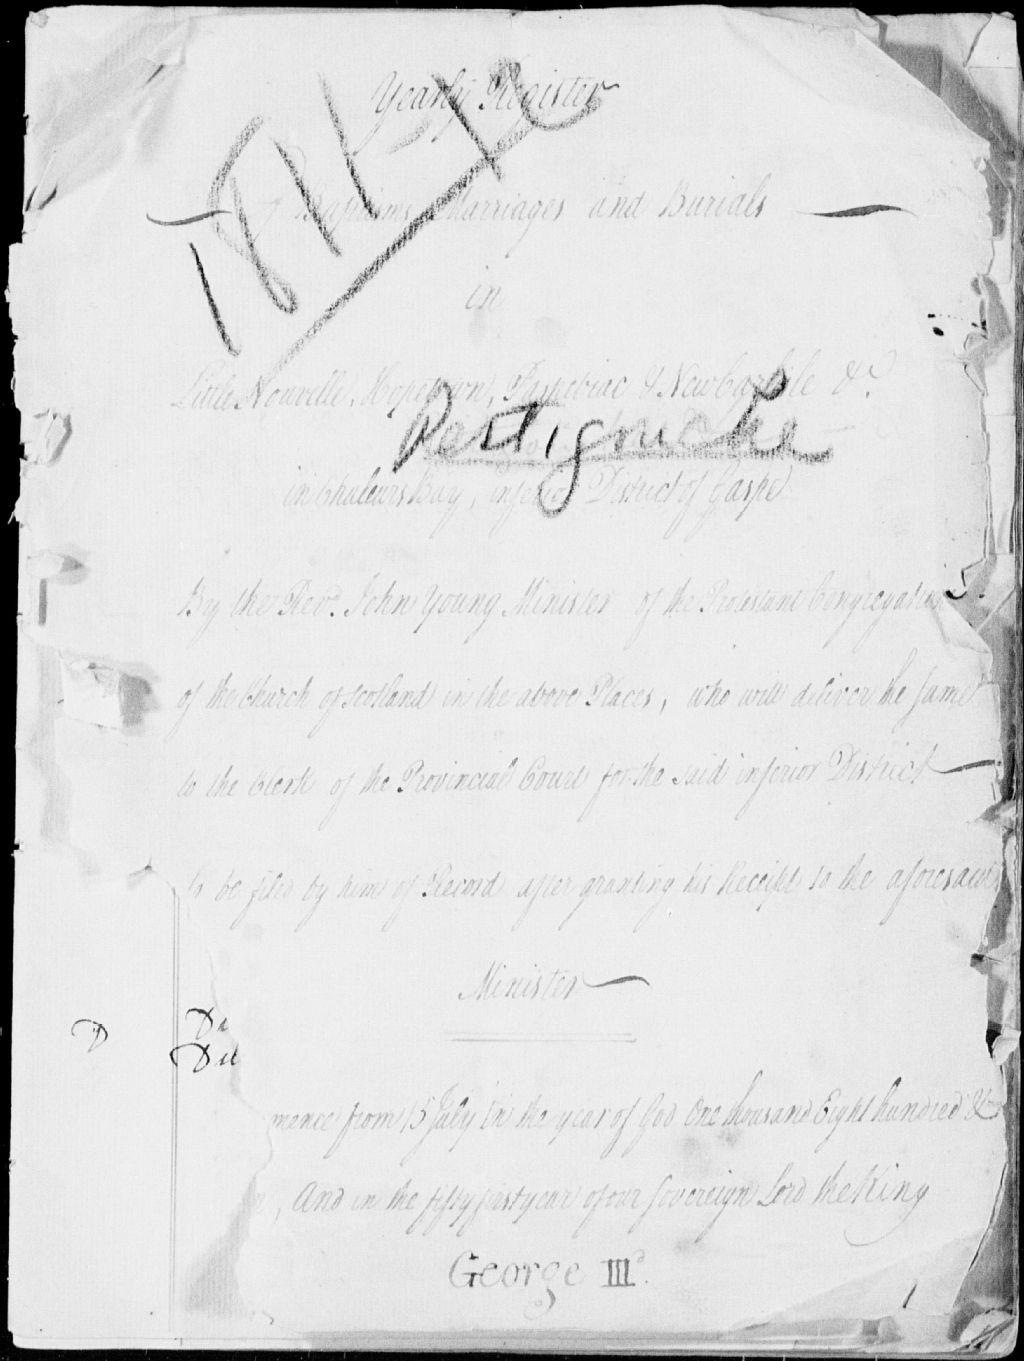 Yearly Register
1811-12
of Baptisms Marriages and Burials
in
Little Nouvelle, Hopetown, Paspebiac & New Carlisle &c.
in Chaleurs Bay, inferior District of Gaspé
By the Revd. John Young Minister of the Protestant Congregations
of the Church of Scotland in the above Places, who will deliver the same
to the Clerk of the Provincial Court for the said inferior District
to be filed by him of Record after granting his Receipt to the aforesaid
Minister
D
Da
Du
mence from 15 July in the year of God One thousand Eight hundred &
n, And in the fifty first year of our Sovereign Lord the King
George IIId.